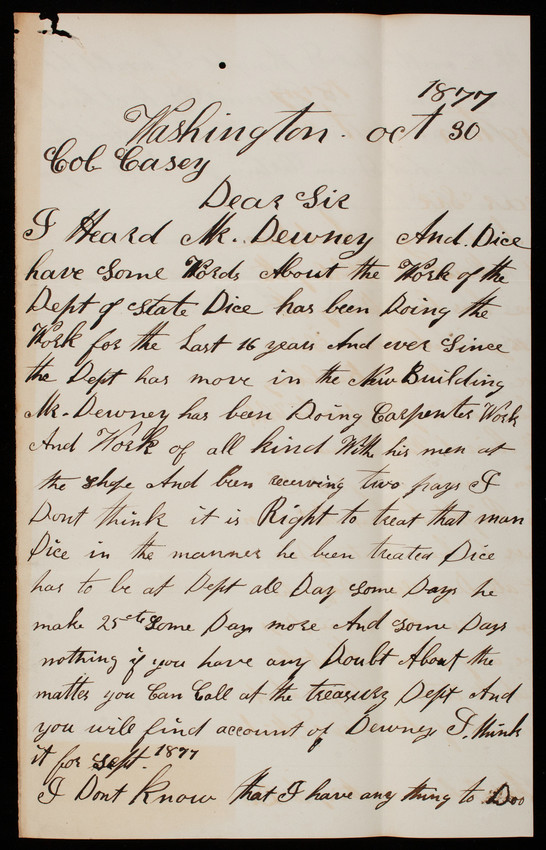 1877
Washington. oct 30
Col Casey
Dear Sir
I Heard Mr. Dewney And. Dice
have Some Words About the Work of the
Dept of State Dice has been Doing the
Work for the Last 16 years And ever Since
the Dept has move in the New Building
Mr. Dewney has been Doing Carpenter Work
And Work of all kind With his men at
the Shope And been receiving two pays I
Dont think it is Right to treat that man
Dice in the manner he been treated Dice
has to be at Dept all Day Some Days he
make 25 cts Some Days more And Some Days
nothing if you have any Doubt About the
matter you Can Call at the treasury Dept And
you will find account of Dewney I. think
it for Sept. 1877
I Dont Know that I have any thing to Doo